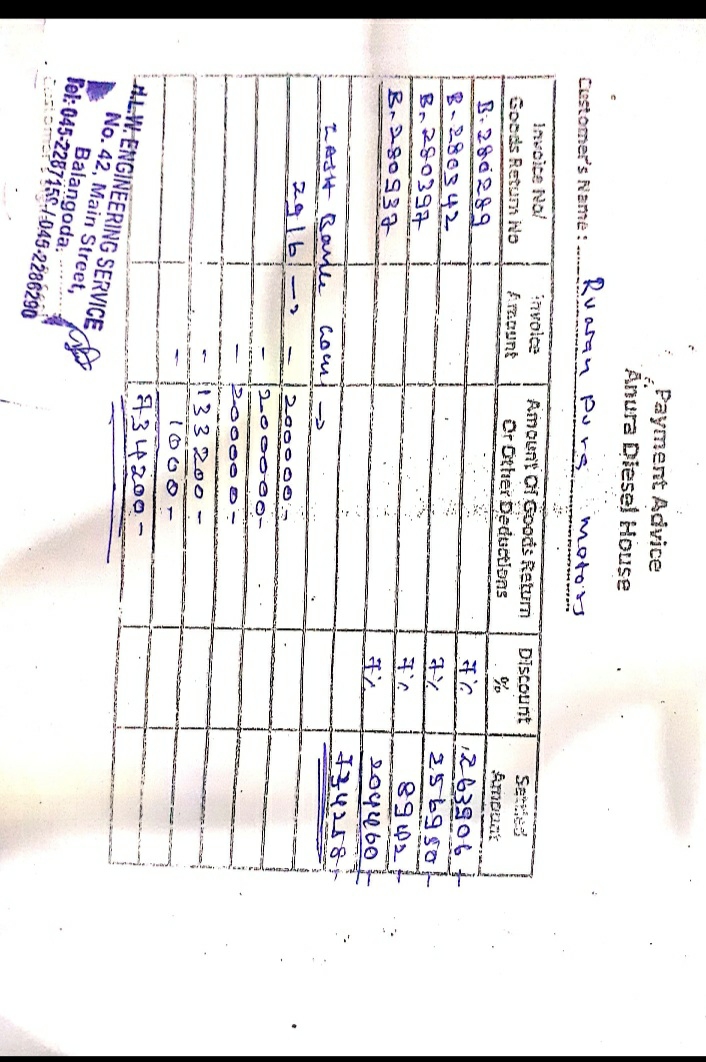 Payment Advice
Anura Diesel House
Customer's Name : Ruwan pura motors
Invoice No/ Goods Return No | Invoice Amount | Amount Of Goods Return Or Other Deductions | Discount % | Settled Amount
B. 280289 7% 263906 -
B. 280342 7% 256950 -
B. 280397 7% 8942 -
B. 280937 7% 204460 -
734258 -
CASH →
2916 → - 200000 -
- 200000 -
- 200000 -
- 133200 -
- 1000 -
734200 -
H.L.W. ENGINEERING SERVICE
No. 42, Main Street,
Balangoda.
Tel: 045-2287156 / 045-2286290